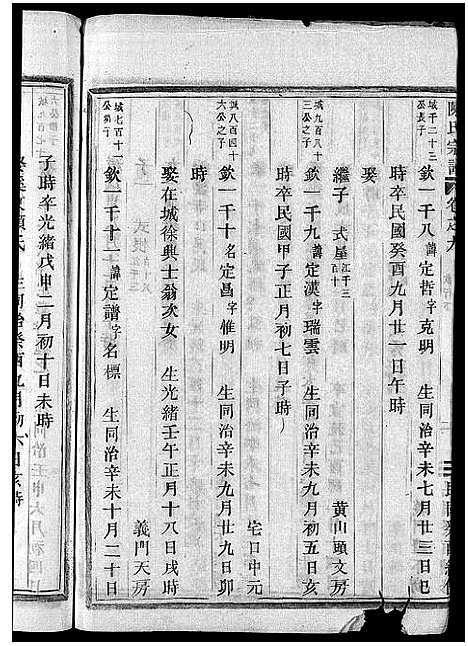 陳氏宗譜 卷之九
城千二十三公長子
欽一千八諱定哲字克明 生同治辛未七月廿三日巳
時卒民國癸酉九月廿一日午時
娶 黃山頭文房
繼子 式屋江千三百十
城九百八十公之子
欽一千九諱定漢字瑞雲 生同治辛未九月初五日亥
時卒民國甲子正月初七日子時
宅口中元
城八百四十六公之子
欽一千十名定昌字惟明 生同治辛未九月廿九日卯
時
娶在城徐興士翁次女 生光緒壬午正月十八日戌時
義門天房
城七百十一公嗣子
欽一千十一諱定譜字名標 生同治辛未十月二十日
子時卒光緒戊申二月初十日未時
生同治癸酉九月初六日亥時